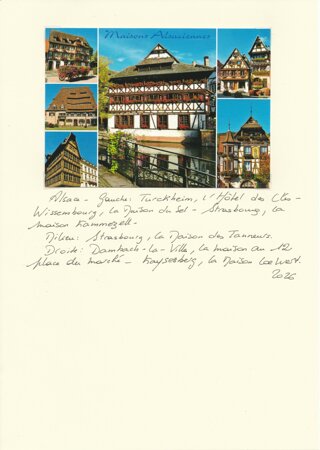 Maisons Alsaciennes
Alsace - Gauche: Turckheim, l'Hôtel des Clés -
Wissembourg, la Maison du Sel - Strasbourg, la
maison Kammerzell -
Milieu: Strasbourg, la Maison des Tanneurs.
Droite: Dambach-la-Ville, la maison au 12
place du marché - Kaysersberg, la Maison Loewert.
2026